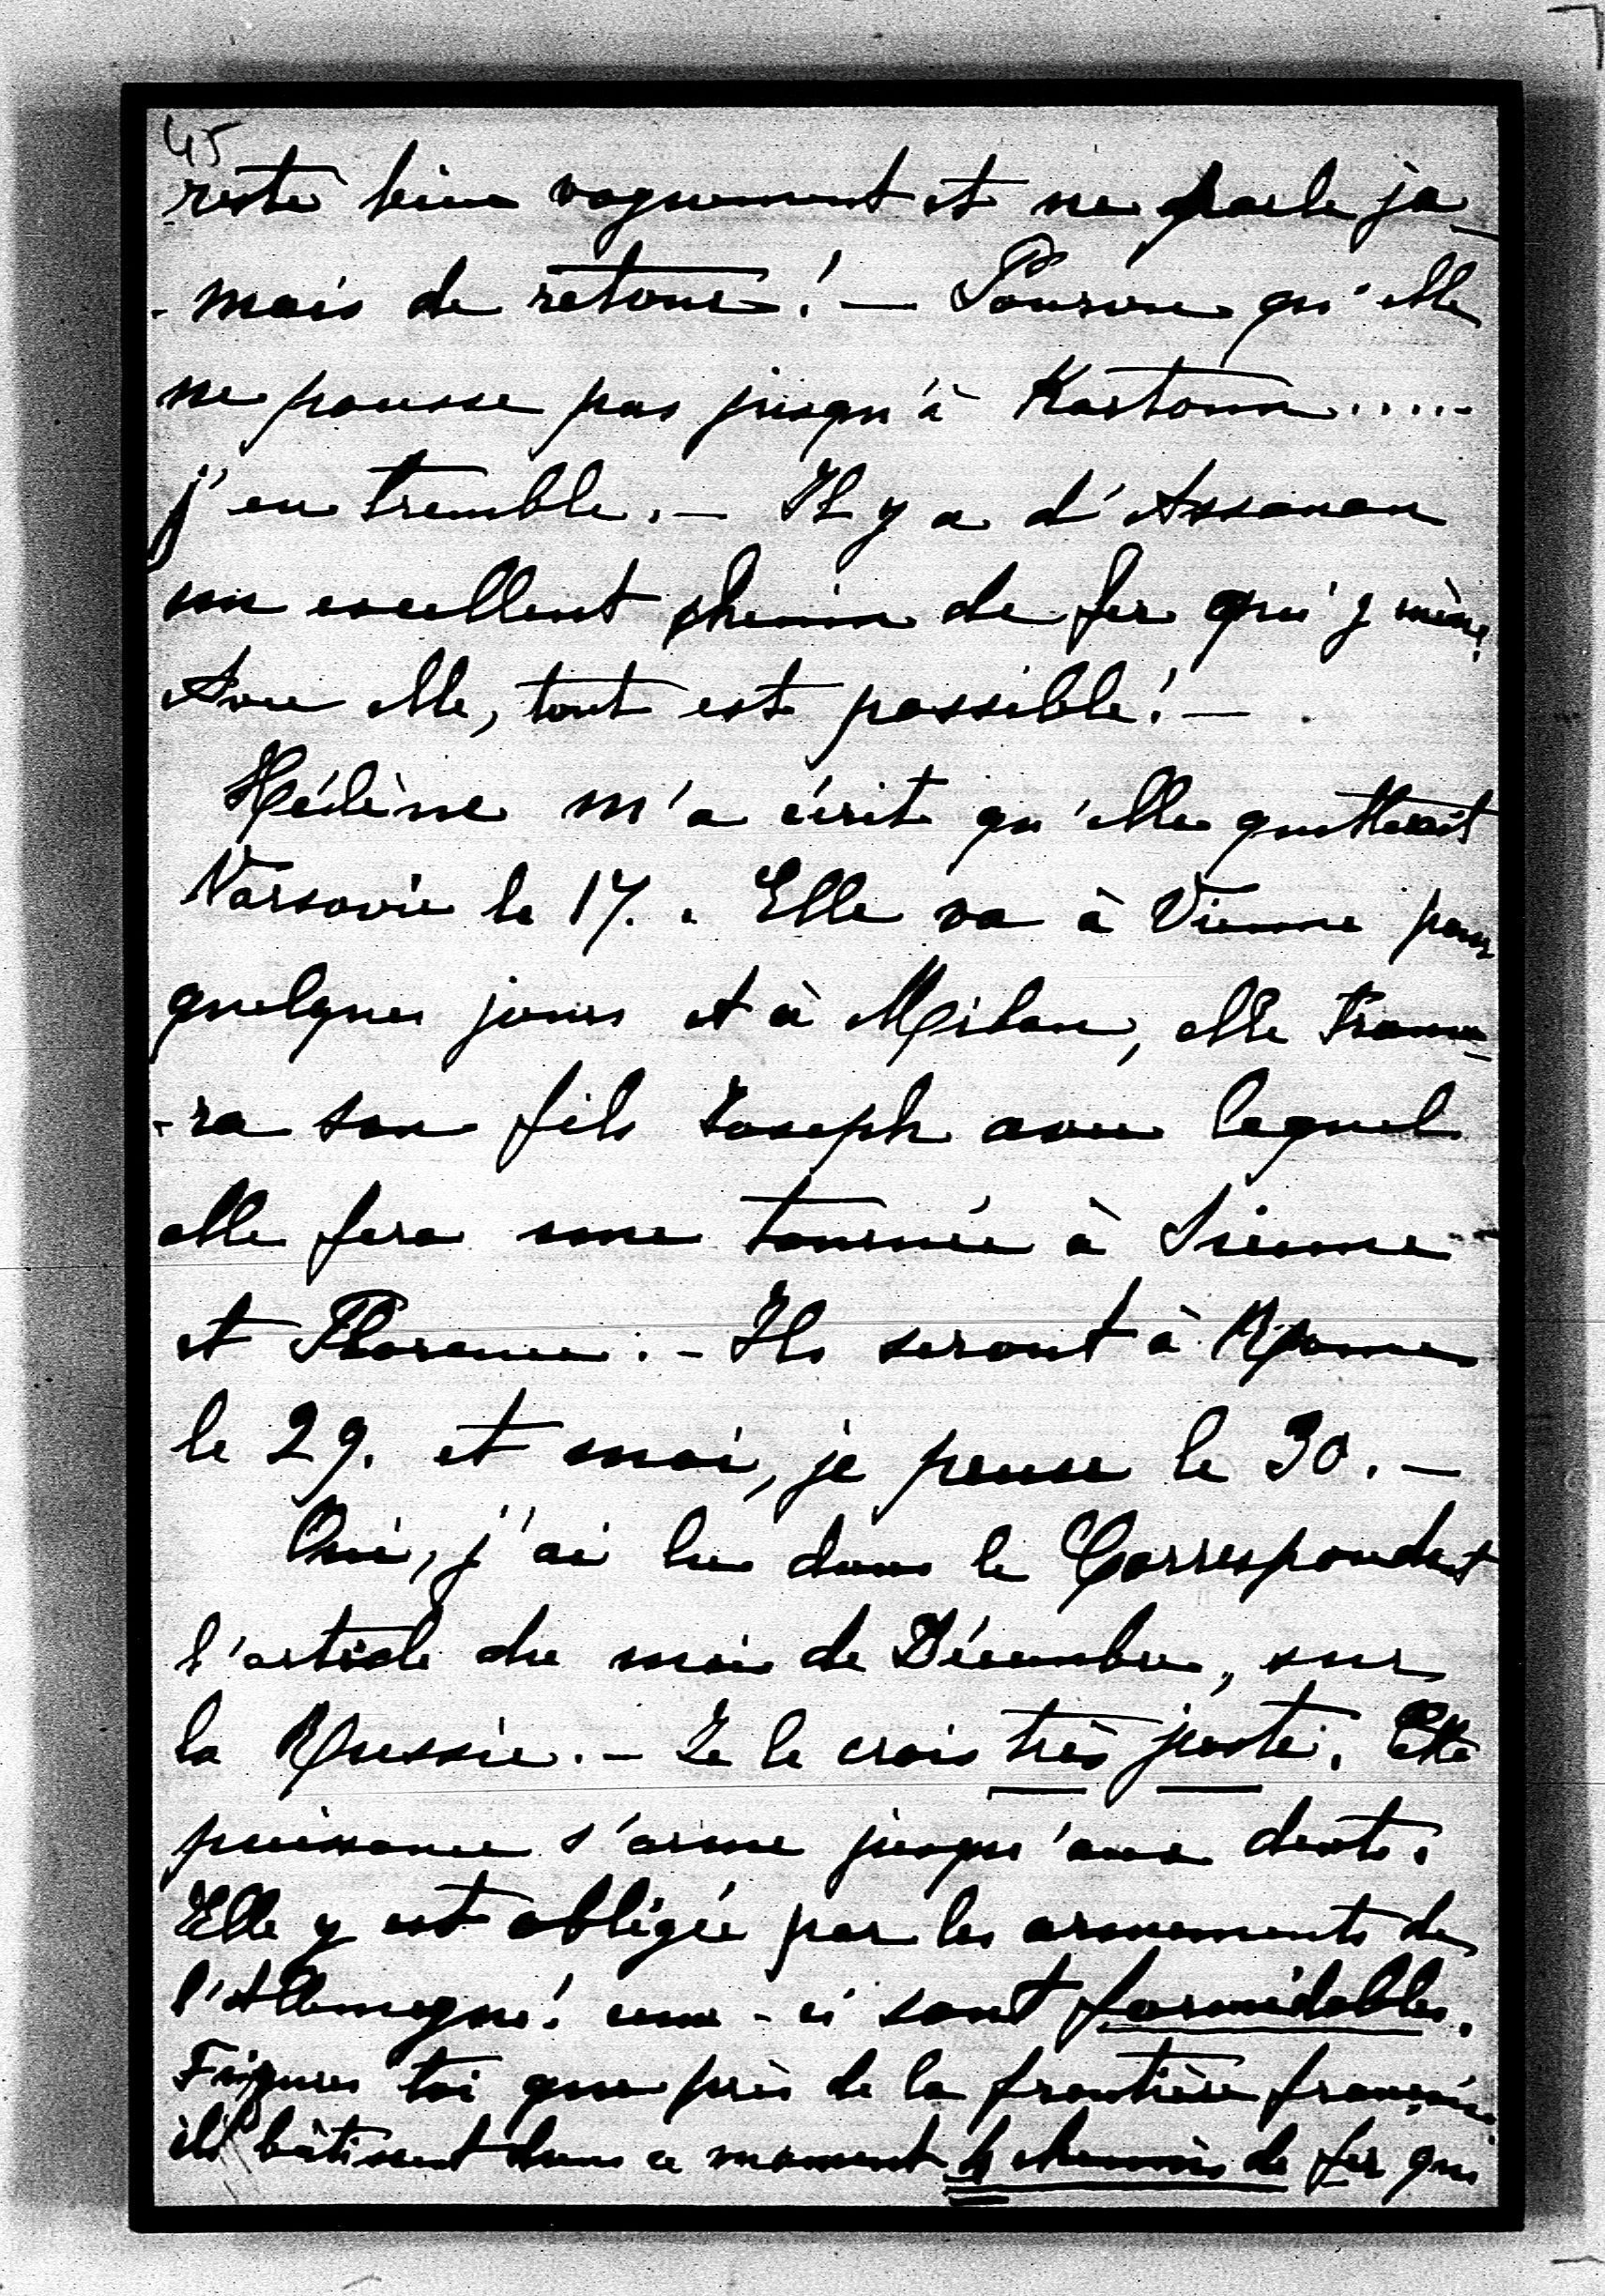 45
reste bien vaguement et ne parle ja-
-mais de retour! — Pourvu qu'elle
ne pousse pas jusqu'à Kartoum.....
j'en tremble. — Il y a d'Assouan
un excellent chemin de fer qui y mène.
Avec elle, tout est possible! —
Hélène m'a écrit qu'elle quitterait
Varsovie le 17. . Elle va à Vienne pour
quelques jours et à Milan, elle trouve-
-ra son fils Joseph avec lequel
elle fera une tournée à Sienne
et Florence. — Ils seront à Rome
le 29. et moi, je pense le 30. —
Oui, j'ai lu dans le Correspondant
l'article du mois de Décembre, sur
la Russie. — Je le crois très juste. Cette
puissance s'arme jusqu'aux dents.
Elle y est obligée par les armements de
l'Allemagne! ceux-ci sont formidables.
Figures toi que près de la frontière française
ils bâtissent dans ce moment 4 chemins de fer qui